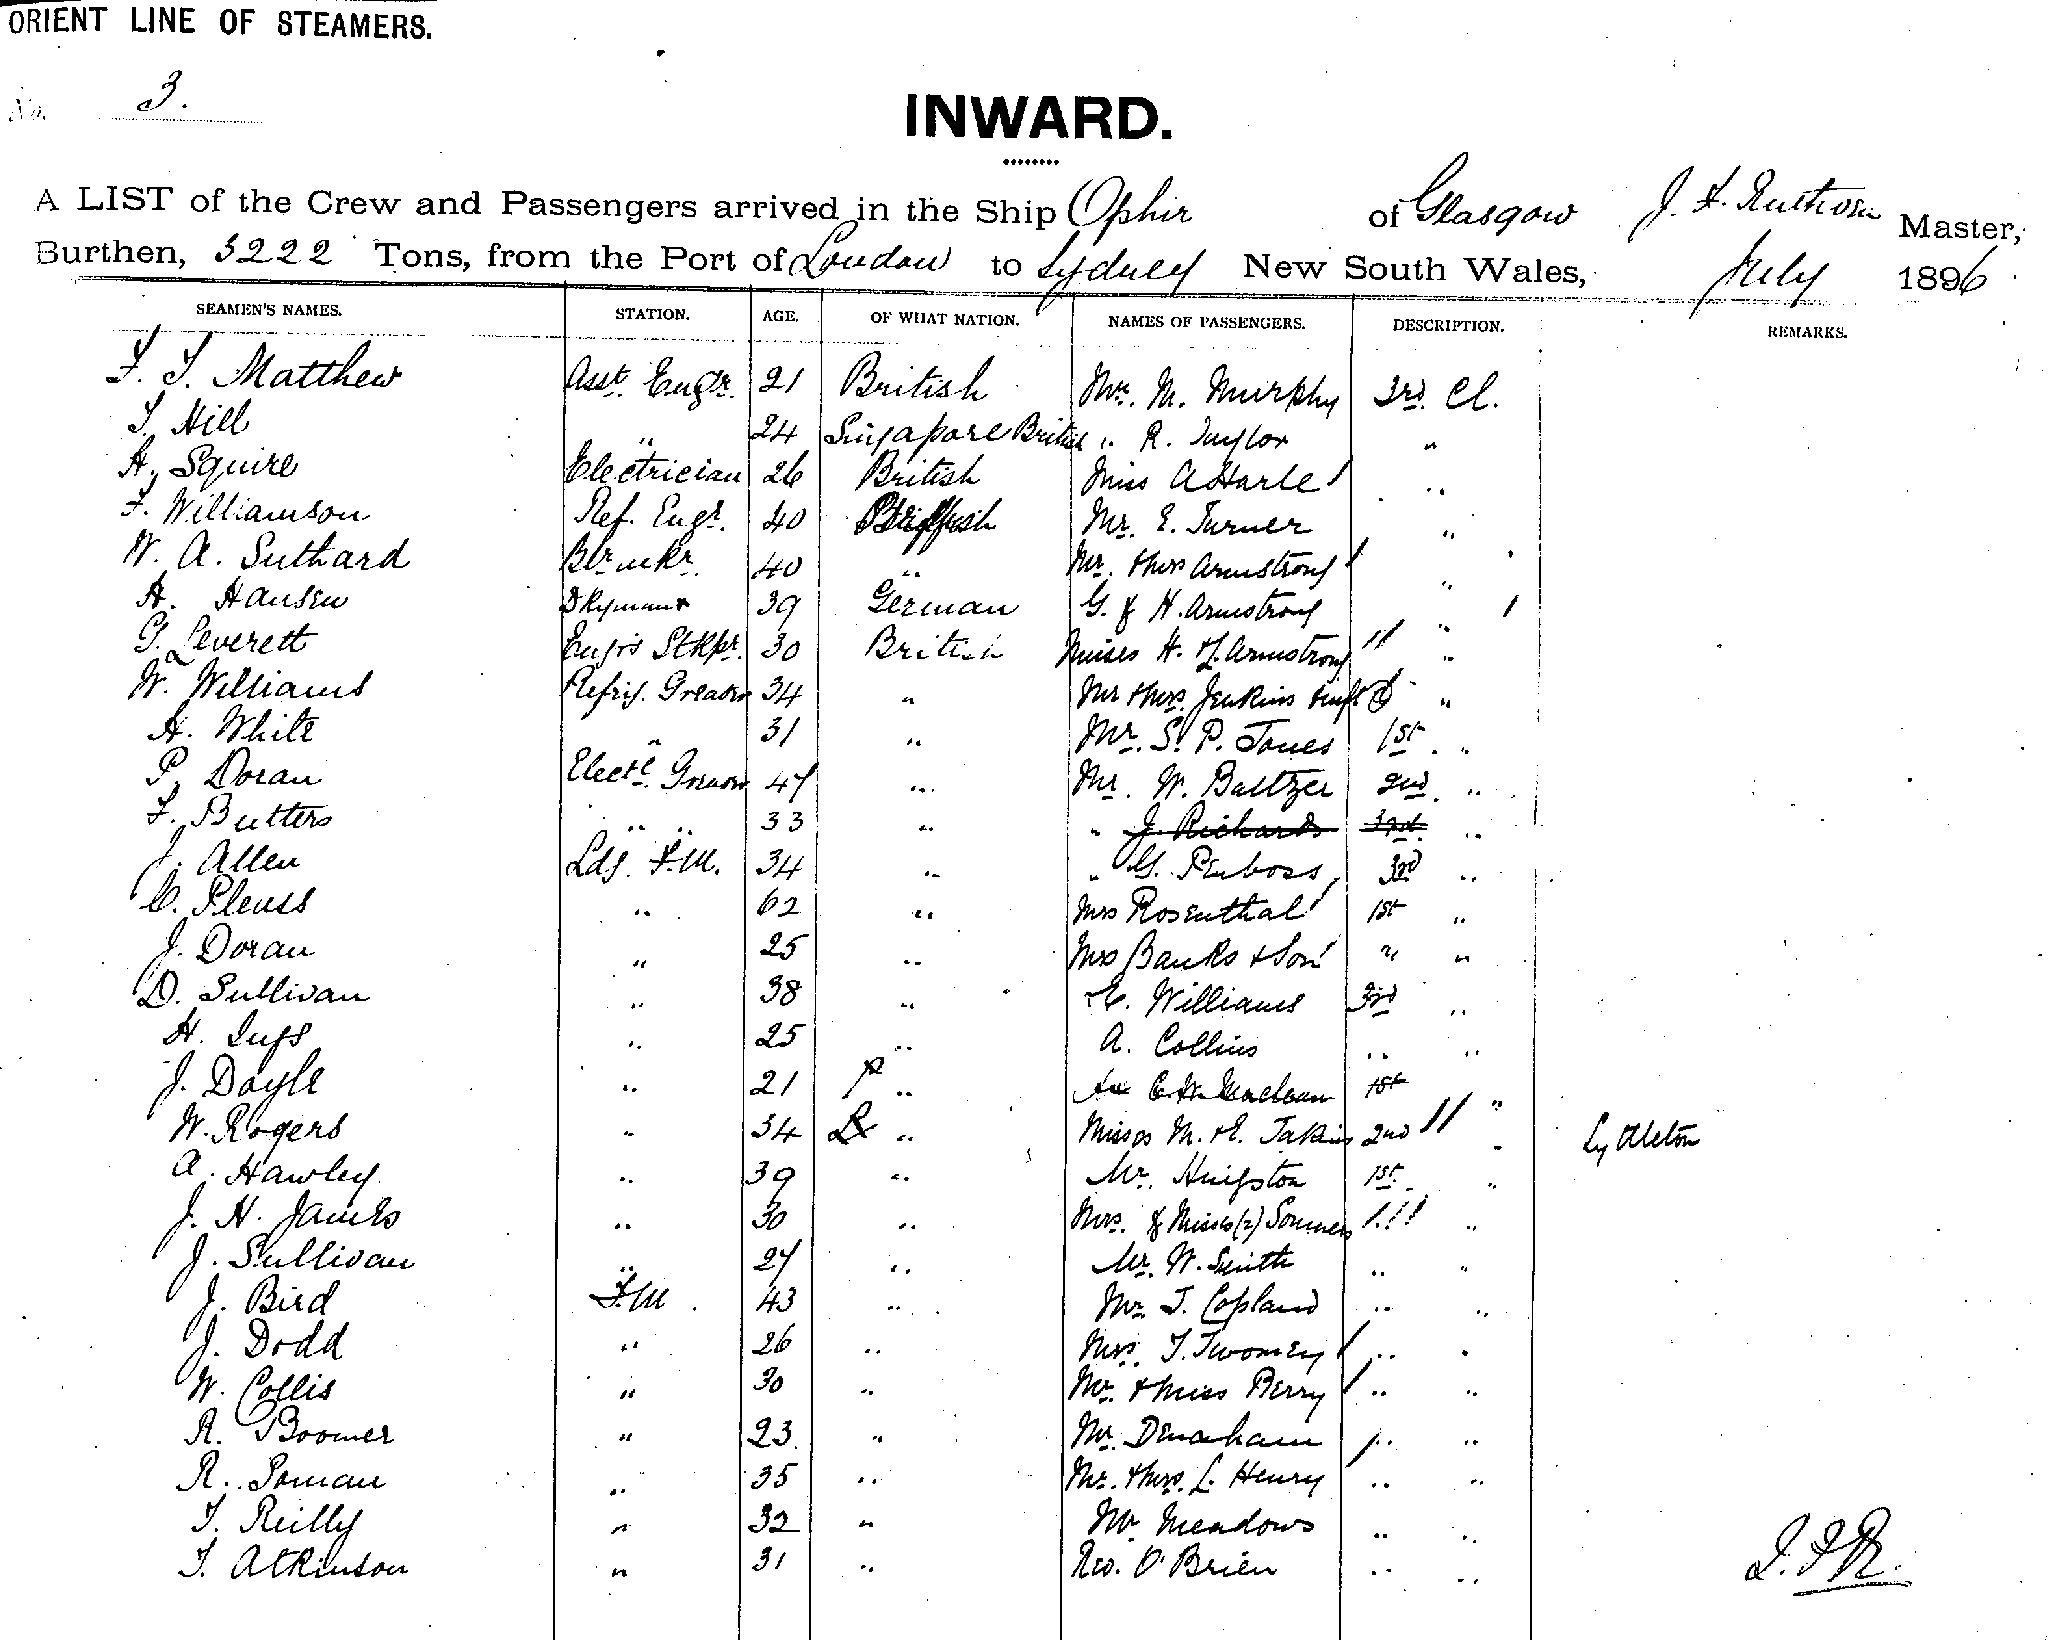 ORIENT LINE OF STEAMERS.
No. 3.
INWARD.
A LIST of the Crew and Passengers arrived in the Ship Ophir of Glasgow J. F. Ruthven Master,
Burthen, 3222 Tons, from the Port of London to Sydney New South Wales, July 1896
SEAMEN'S NAMES. STATION. AGE. OF WHAT NATION. NAMES OF PASSENGERS. DESCRIPTION. REMARKS.
F. J. Matthew Asst. Engr. 21 British Mr. M. Murphy 3rd. Cl.
J. Hill " 24 Singapore British " R. Taylor "
A. Squire Electrician 26 British Miss A Harle "
F. Williamson Ref. Engr. 40 British Mr. E. Turner "
W. A. Suthard Blrmkr. 40 " Mr. & Mrs Armstrong "
A. Hansen Dkyman 39 German G. & H. Armstrong "
G. Leverett Engrs Stkpr. 30 British Misses H. & J. Armstrong "
W. Williams Refrig. Greaser 34 " Mr & Mrs. Jenkins & inft "
H. White " 31 " Mr. S. P. Jones 1st. "
P. Doran Elect. Greaser 47 " Mr. W. Baltzer 2nd. "
F. Butters " " 33 " " J. Richards 3rd. "
J. Allen Ldg F.M. 34 " " G. Penboss 3rd "
C. Pleuss " 62 " Mrs Rosenthal 1st "
J. Doran " 25 " Mrs Banks & Son " "
D. Sullivan " 38 " E. Williams 3rd "
H. " 25 " A. Collins " "
J. Doyle " 21 " 1st "
W. Rogers " 34 " Misses M. & E. Jakins 2nd " Lyttleton
A. Hawley " 39 " Mr. Hingston 1st. "
J. H. James " 30 " Mrs. & Misses (2) Sommers "
J. Sullivan " 27 " Mr. W. Smith " "
J. Bird F.M. 43 " Mr J. Copland " "
J. Dodd " 26 " Mrs. T. Twomey " "
W. Collis " 30 " Mr. & Miss Berry " "
R. Boomer " 23 " Mr. Denaham " "
R. Soman " 35 " Mr. & Mrs. L. Henry " "
T. Reilly " 32 " Mr Meadows " "
T. Atkinson " 31 " Rev. O'Brien " "
J. F. R.